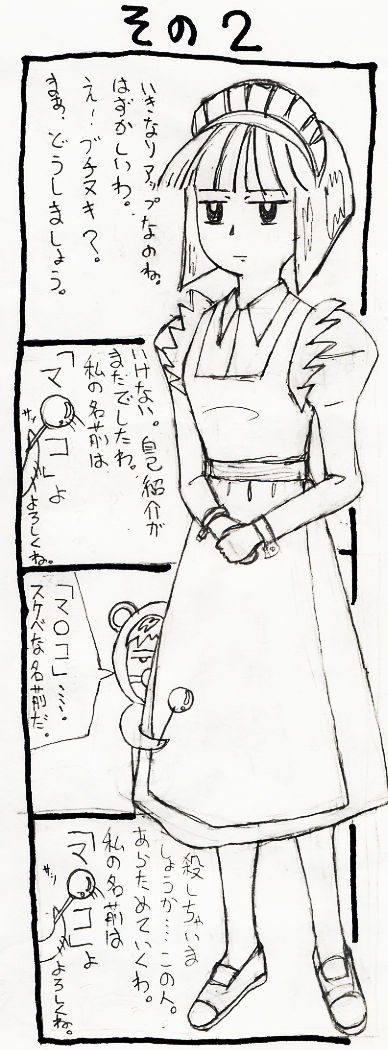 その2
いきなりアップなのね。
はずかしいわ。
え！ブチヌキ？。
まぁ、どうしましょう。
いけない。自己紹介が
まだでしたわ。
私の名前は
「マ コ」よ
サッ
よろしくね。
「マ○コ」‥‥。
スケベな名前だ。
殺しちゃいま
しょうか‥‥この人。
あらためていくわ。
私の名前は
「マ コ」よ
サッ
よろしくね。